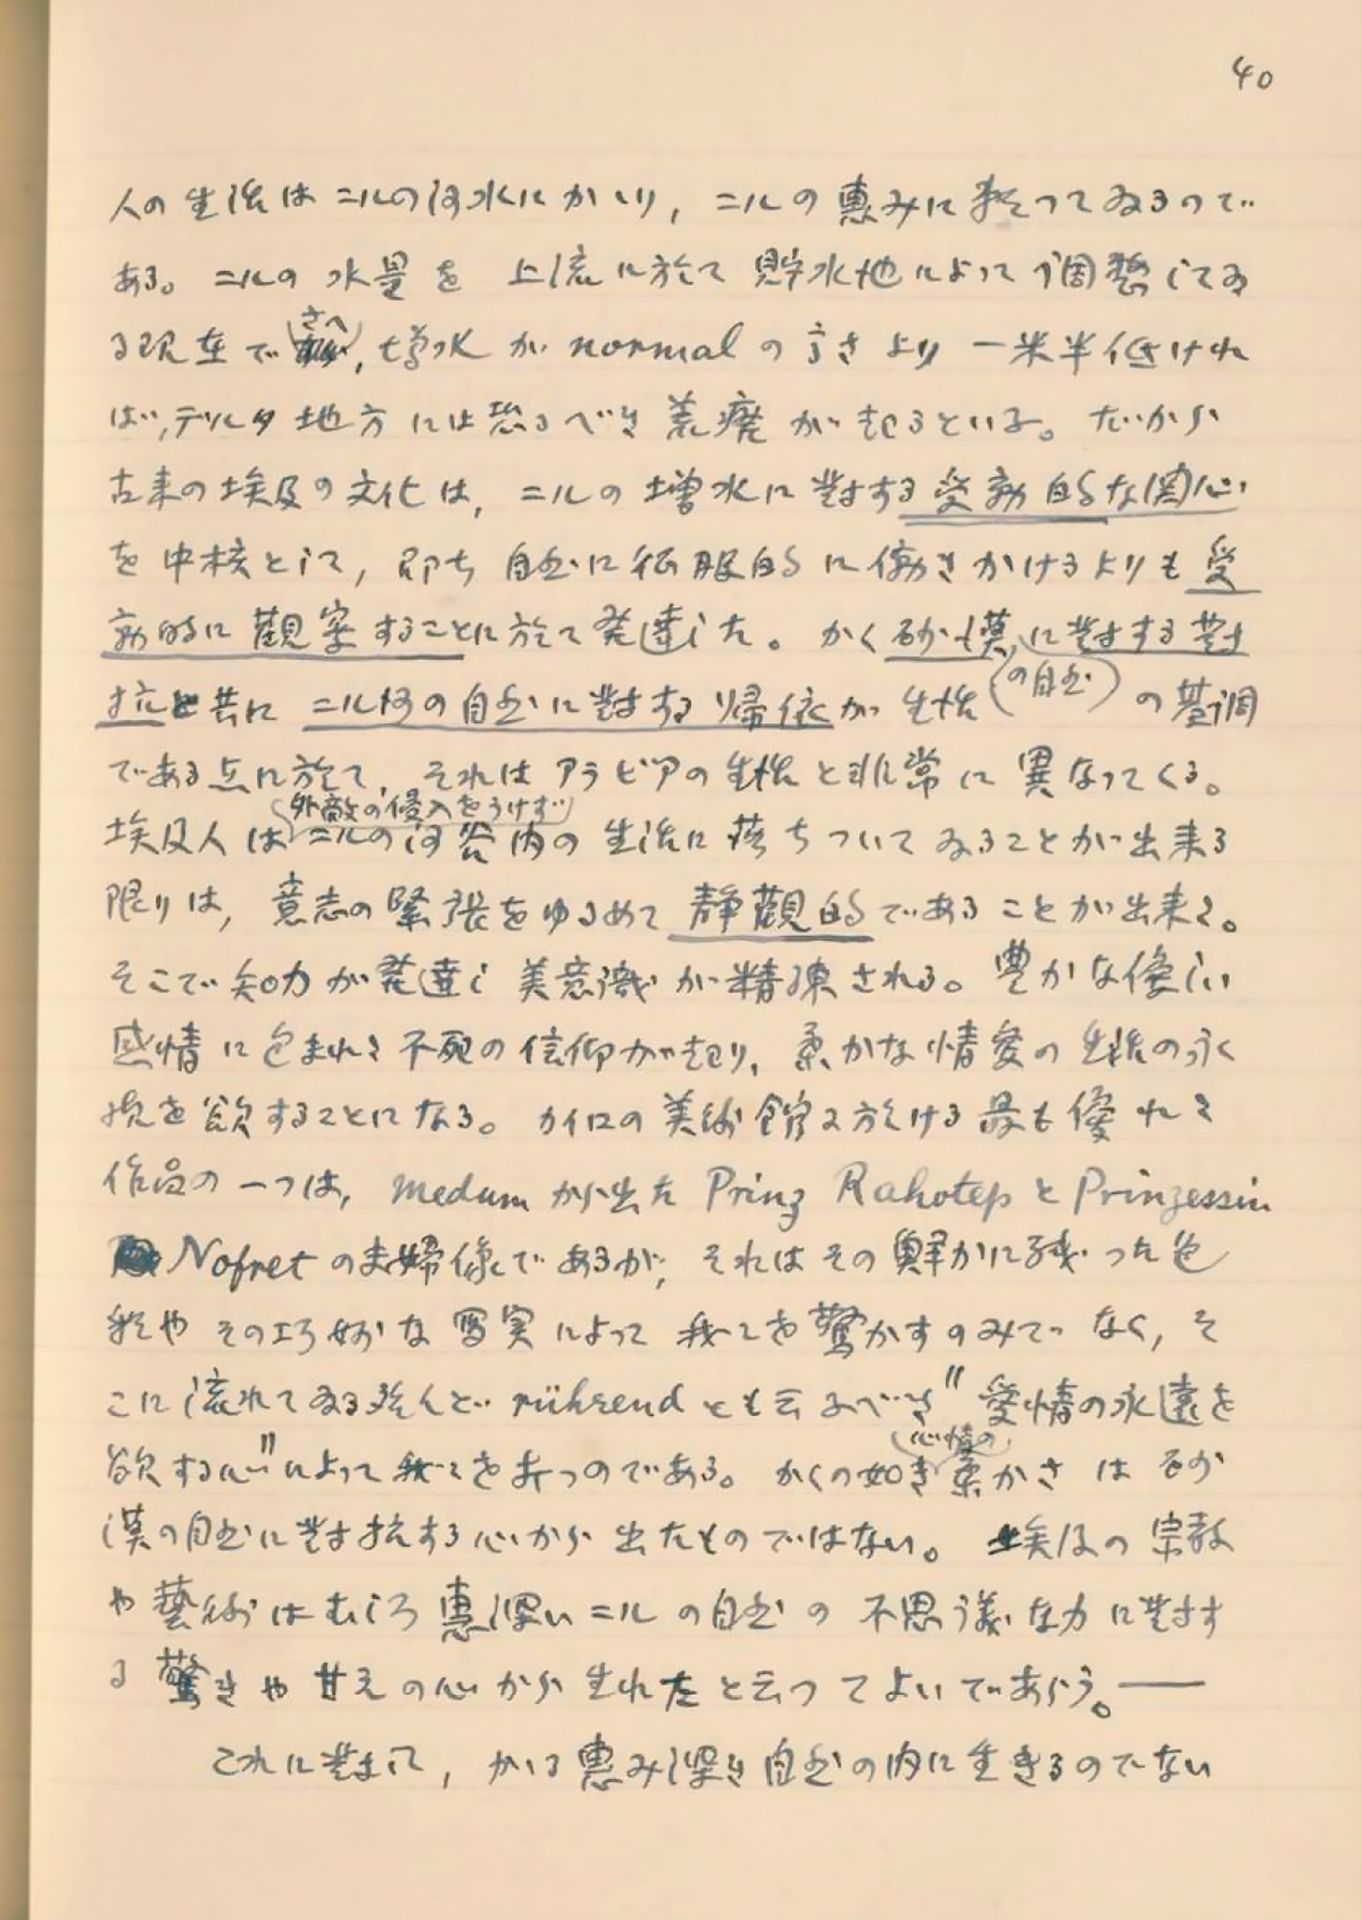 40
人の生活はニルの河水にかゝり, ニルの恵みに頼つてゐるので
ある。ニルの水量を上流に於て貯水池によつて調整してゐ
る現在でさへ, 増水が normal の高さより一米半低けれ
ば, デルタ地方には恐るべき荒廃が起るといふ。だから
古来の埃及の文化は, ニルの増水に対する受動的な関心
を中核として, 即ち自然に征服的に働きかけるよりも受
動的に觀察することに於て発達した。かく砂漠の自然に対する対
抗と共にニル河の自然に対する帰依が生活の基調
である点に於て, それはアラビアの生活と非常に異なつてくる。
埃及人は外敵の侵入をうけずニルの河谷内の生活に落ちついてゐることが出来る
限りは, 意志の緊張をゆるめて静觀的であることが出来た。
そこで知力が発達し美意識が精錬される。豊かな優しい
感情に包まれた不死の信仰が起り, 柔かな情愛の生活の永
続を欲することになる。カイロの美術館に於ける最も優れた
作品の一つは, Medum から出た Prinz Rahotep と Prinzessin
Nofret の夫婦像であるが, それはその鮮かに残つた色
彩やその巧妙な写実によつて我々を驚かすのみでなく, そ
こに流れてゐる殆んど rührend とも云ふべき "愛情の永遠を
欲する心" によつて我々を打つのである。かくの如き心情の柔かさは砂
漠の自然に対抗する心から出たものではない。埃及の宗教
や藝術はむしろ恵深いニルの自然の不思議な力に対す
る驚きや甘えの心から生れたと云つてよいであらう。——
これに対して, かゝる恵み深き自然の内に生きるのでない